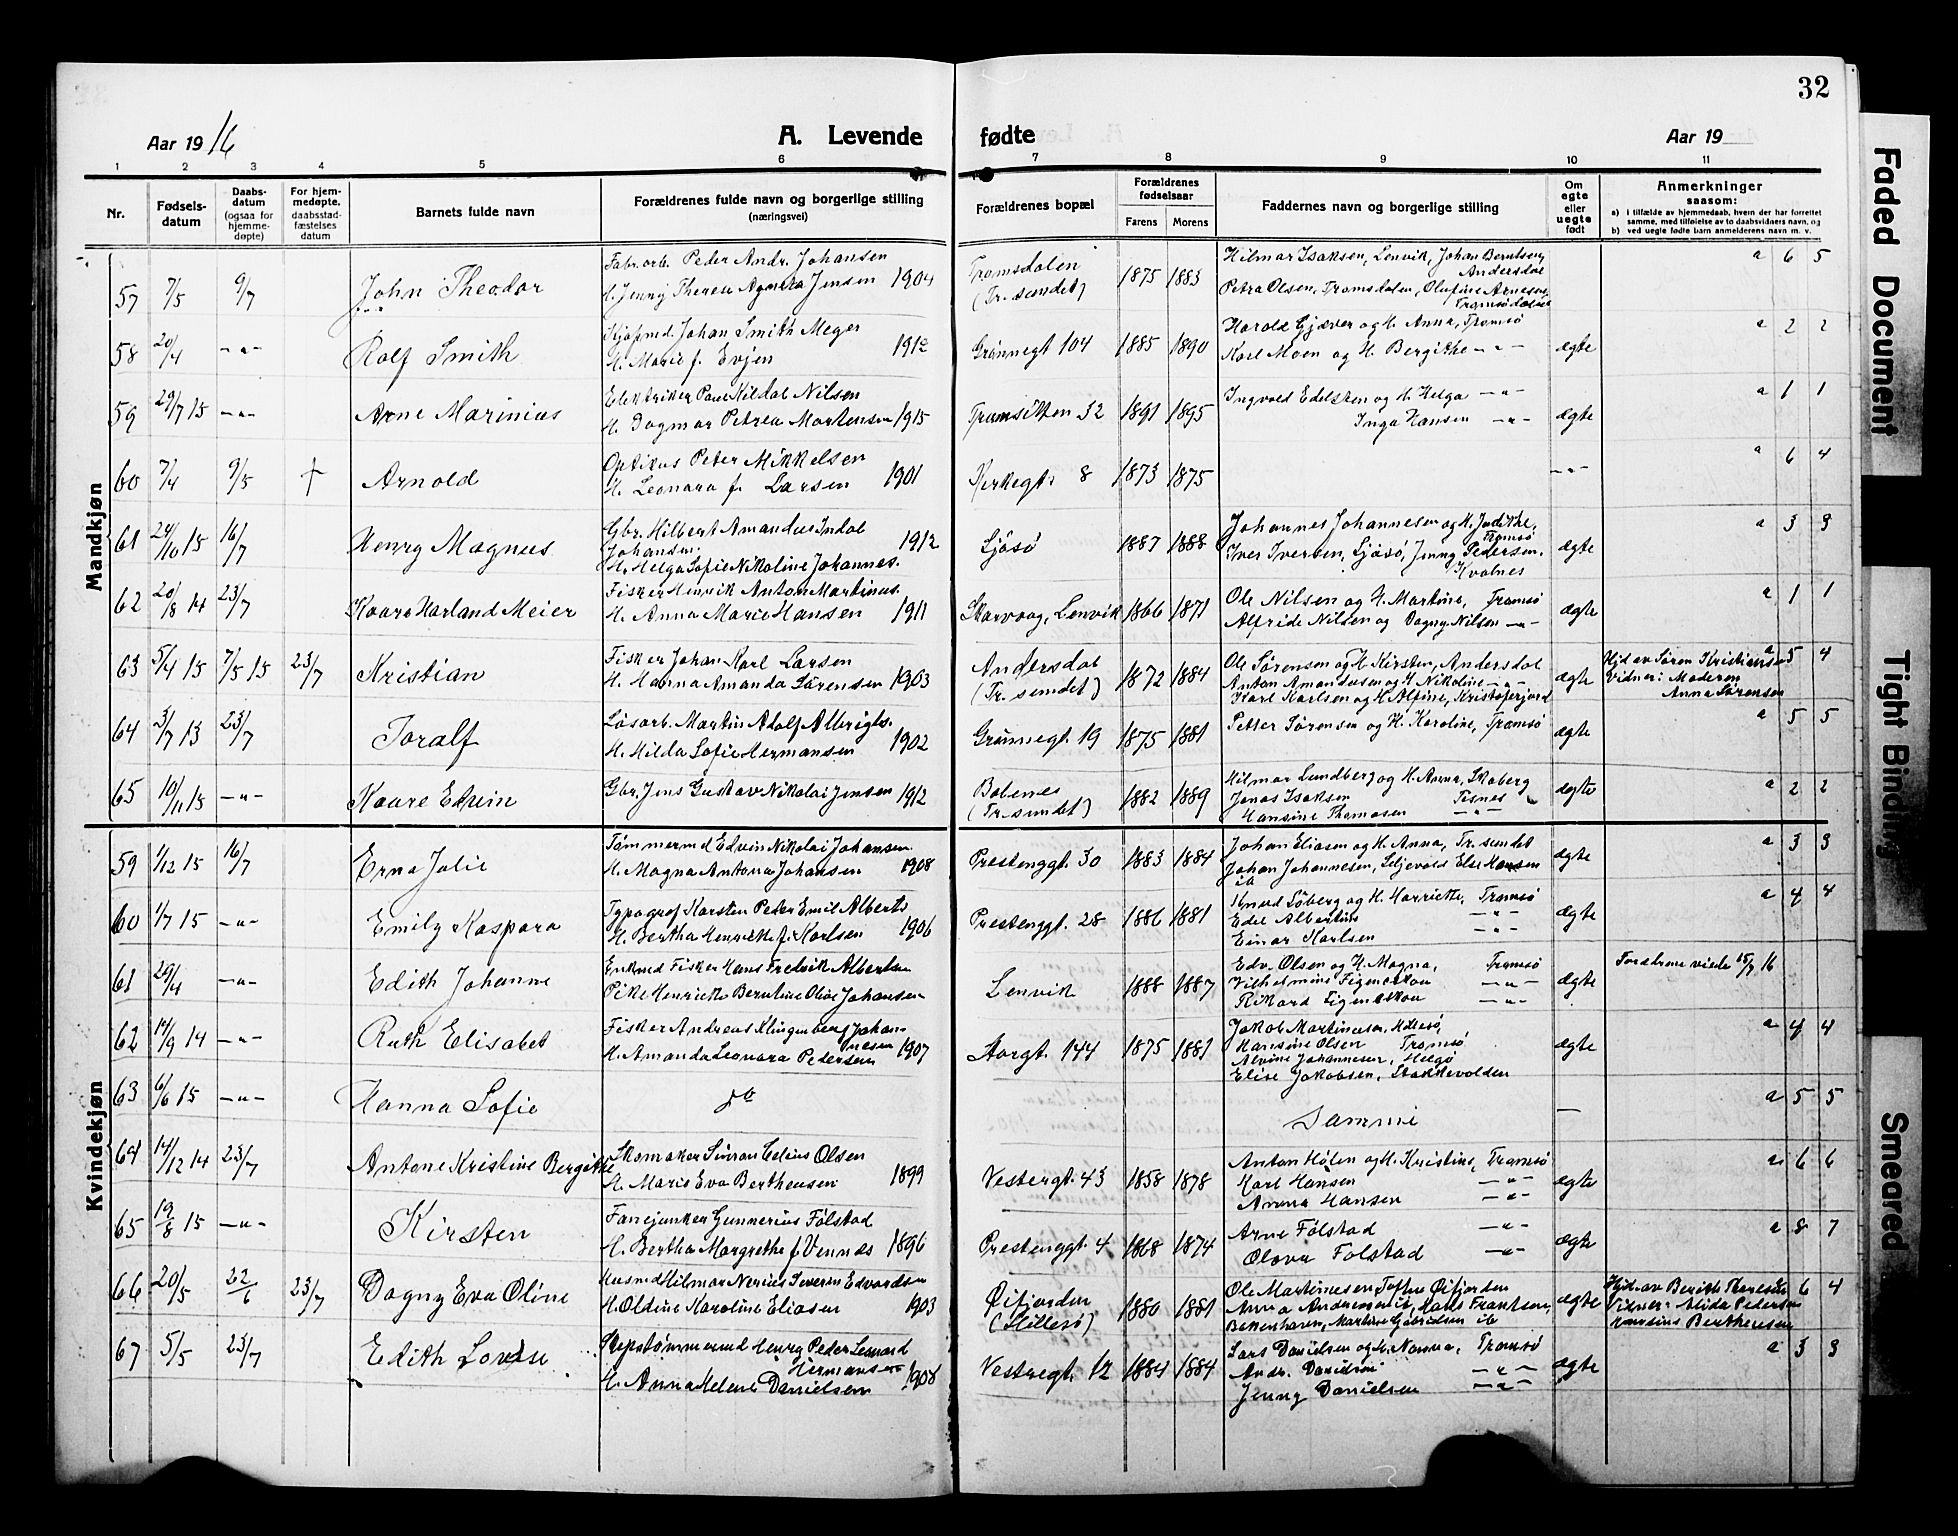 32
Aar 1916
A. Levende
fødte
Aar 19
1 2 3 4 5 6 7 8 9 10 11
Nr.
Fødsels-
datum
Daabs-
datum
(ogsaa for
hjemme-
døpte)
For hjem-
medøpte,
daabsstad-
fæstelses
datum
Barnets fulde navn
Forældrenes fulde navn og borgerlige stilling
(næringsvei)
Forældrenes bopæl
Forældrenes
fødselsaar
Farens
Morens
Faddernes navn og borgerlige stilling
Om
egte
eller
uegte
født
Anmerkninger
saasom:
a) i tilfælde av hjemmedaab, hvem der har forrettet
samme, med tilføielse av to daabsvidners navn, og
b) ved uegte fødte barn anmelderens navn m. v.
Mandkjøn
57 7/5 9/7 John Theodor
Fabr.arb. Peder Andr. Johansen
H. Jenny Therea Agneta Jensen 1904
Tromsdalen
(Tr.sundet) 1875 1883
Hilmar Isaksen, Lenvik, Johan Berntsen,
Andersdal
Petra Olsen, Tromsdalen, Olufine Arnesen,
Tromsdalen
a 6 5
58 20/4 -"- Rolf Smith
Kjøpmd. Johan Smith Meyer
H. Marie f. Evjen 1912
Grønnegt 104 1885 1890
Harald Gjæver og H. Anna, Tromsø
Karl Moen og H. Bergithe -"-
ægte a 2 2
59 29/7 15 -"- Arne Marinius
Elektriker Paul Kildal Nilsen
H. Dagmar Petrea Mortensen 1915
32 1891 1895
Ingvald Edelsten og H. Helga -"-
Inga Hansen -"-
ægte a 1 1
60 7/4 9/5 † Arnold
Optikus Peter Mikkelsen
H. Leonara f. Larsen 1901
Kirkegt. 8 1873 1875
-"- a 6 4
61 24/10 15 16/7 Henry Magnus
Gbr. Hilbert Amandus Indal
Johansen
H. Helga Sofie Nikoline Johannes. 1912
Sjøsø 1887 1888
Johannes Johannesen og H. Judithe,
Tromsø
Iver Iversen, Sjøsø, Jenny Pedersen,
Kvalnes
ægte a 3 3
62 20/8 14 23/7 Kaare Harland Meier
Fisker Henrik Anton Martinus.
H. Anna Marie Hansen 1911
Skarvaag, Lenvik 1866 1871
Ole Nilsen og H. Martine, Tromsø
Alfride Nilsen og Dagny Nilsen -"-
ægte a 1 1
63 5/4 15 7/5 15 23/7 Kristian
Fisker Johan Karl Larsen
H. Hanna Amanda Sørensen 1903
Andersdal
(Tr.sundet) 1872 1884
Ole Sørensen og H. Kirsten, Andersdal
Anton Amandusen og H. Nikoline -"-
Karl Karlsen og H. Alfine, Kristoferjord
ægte
Hjd av Søren Kristiansen
Vidner: Moderen
Anna Sørensen
a 5 4
64 3/7 13 23/7 Toralf
Løsarb. Martin Adolf Albrigts.
H. Hilda Sofie Hermansen 1902
Grønnegt. 19 1875 1881
Petter Sørensen og H. Karoline, Tromsø
ægte a 5 5
65 10/11 15 -"- Kaare Edvin
Gbr. Jens Gustav Nikolai Jensen 1912
Balsnes
(Tr.sundet) 1882 1889
Hilmar Lundberg og H. Anna, Skaberg
Jonas Isaksen Tisnes
Hansine Thomasen -"-
ægte a 2 2
Kvindekjøn
59 1/12 15 16/7 Erna Julie
Tømmermd Edvin Nikolai Johansen.
H. Magna Antona Johansen 1908
Prestenggt. 30 1883 1884
Johan Eliasen og H. Anna, Tr.sundet
Johan Johannesen, Seljevold Else Hansen
ib
ægte a 3 3
60 1/7 15 -"- Emily Kaspara
Typograf Karsten Peder Emil Alberts
H. Bertha Henrikke f. Karlsen 1906
Prestenggt. 28 1886 1881
Knud Søberg og H. Harriette, Tromsø
Edel Albertsen -"-
Einar Karlsen -"-
ægte a 4 4
61 29/4 -"- Edith Johanne
Enkmd Fisker Hans Fredrik Albertsen
Pike Henrikke Berntine Oline Johansen
Lenvik 1888 1887
Edv. Olsen og H. Magna, Tromsø
Vilhelmine Figenskou -"-
Rikard Figenskou -"-
ægte
Forældrene viede 15/7 16
62 14/9 14 -"- Ruth Elisabet
Fisker Andreas Klingenberg Johan-
nesen
H. Amanda Leonara Pedersen 1907
Storgt. 144 1875 1881
Jakob Martinussen, Hillesø,
Hansine Olsen Tromsø
Alvine Johannesen, Helgø
Elise Jakobsen, Stakkevolden
ægte a 4 4
63 6/6 15 -"- Hanna Sofie
do
Samme
— a 5 5
64 14/12 14 23/7 Antone Kristine Bergithe
Skomaker Simon Edius Olsen
H. Marie Eva Bertheusen 1899
Vestergt. 43 1858 1878
Anton Holen og H. Kristine, Tromsø
Karl Hansen -"-
Anna Hansen -"-
ægte a 6 6
65 19/8 15 -"- Kirsten
Fanejunker Gunnerius Følstad
H. Bertha Margrethe f. Vennes 1896
Prestenggt. 4 1868 1874
Arne Følstad -"-
Olava Følstad -"-
ægte a 8 7
66 20/5 22/6 23/7 Dagny Eva Oline
Husmd Hilmar Nerius Severin Edvardsen
H. Oldine Karoline Eliasen 1903
Øifjorden
(Hillesø) 1880 1881
Ole Martinussen Øifjorden
Anna Andreassen ib, Hans Frantsen,
Bakkenhaven, Martine Gabrielsen ib
ægte
Hjd. av Berith Theresie
Vidner: Alida Pedersen
Hansine Bertheusen
6 4
67 5/5 23/7 Edith Lovise
Skipstømmermd Henry Peder Leonard
Hermansen
H. Anna Helene Danielsen 1908
Vestregt. 12 1884 1884
Lars Danielsen og H. Hanna, Tromsø
Andr. Danielsen -"-
Jenny Danielsen -"-
ægte a 3 3
Faded Document
Tight Binding
Smeared